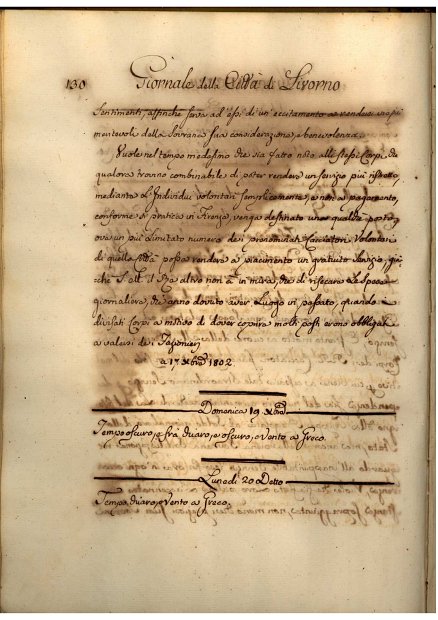 130 Giornale della Città di Livorno
Sentimenti, affinche serva ad essi di un' eccitamento a rendersi
mentevole della Sovrana sua considerazione, e benevolenza.
Vuole nel tempo medesimo che sia fatto noto alli stessi Corpi, che
qualora
mediante Individui volontari semplicemente, e non a pagamento,
conforme si pratica in Firenze, venga destinato una qualche
ove un più limitato numero dei prenominati Cacciatori Volontari
di quella Città possa rendere a piacimento un gratuito Servizio,
che S. A. R. il Re altro non à in mira, che di risecare la spesa
giornaliera, che anno dovuto aver luogo in passato, quando
divisati Corpi a motivo di dover coprire molti posti erono obbligati
a valersi dei
a 17 Xbre 1802.
Domenica 19 Xbre
Tempo oscuro, e frà chiaro, e oscuro, e Vento a Greco.
Lunedi 20 Detto
Tempo chiaro, e Vento a Greco.